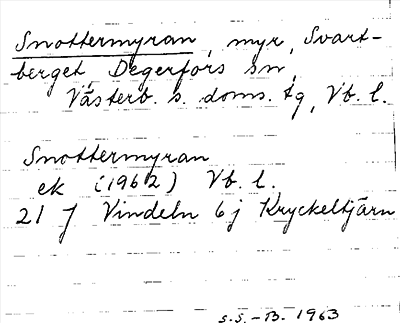 Snottermyran, myr, Svart-
berget, Degerfors sn,
Västerb. s. doms. tg, Vb. l.
Snottermyran
ek (1962) Vb. l.
21 J Vindeln 6j Kryckeltjärn
S.S.-B. 1963